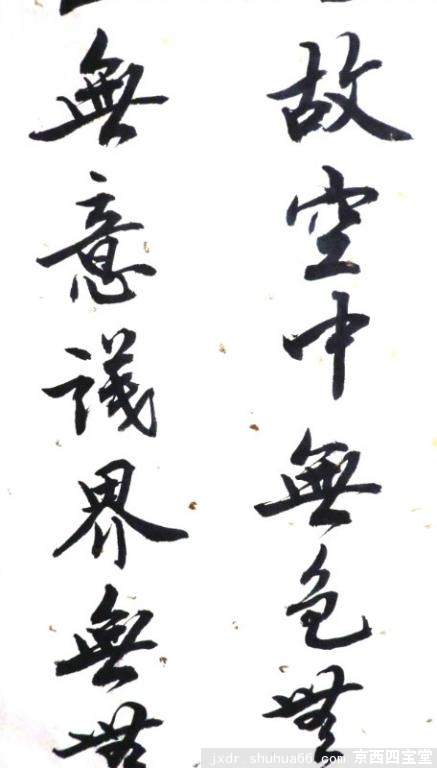 故空中無色無
無意識界無無
jxdr.shuhua66.com 京西四宝堂